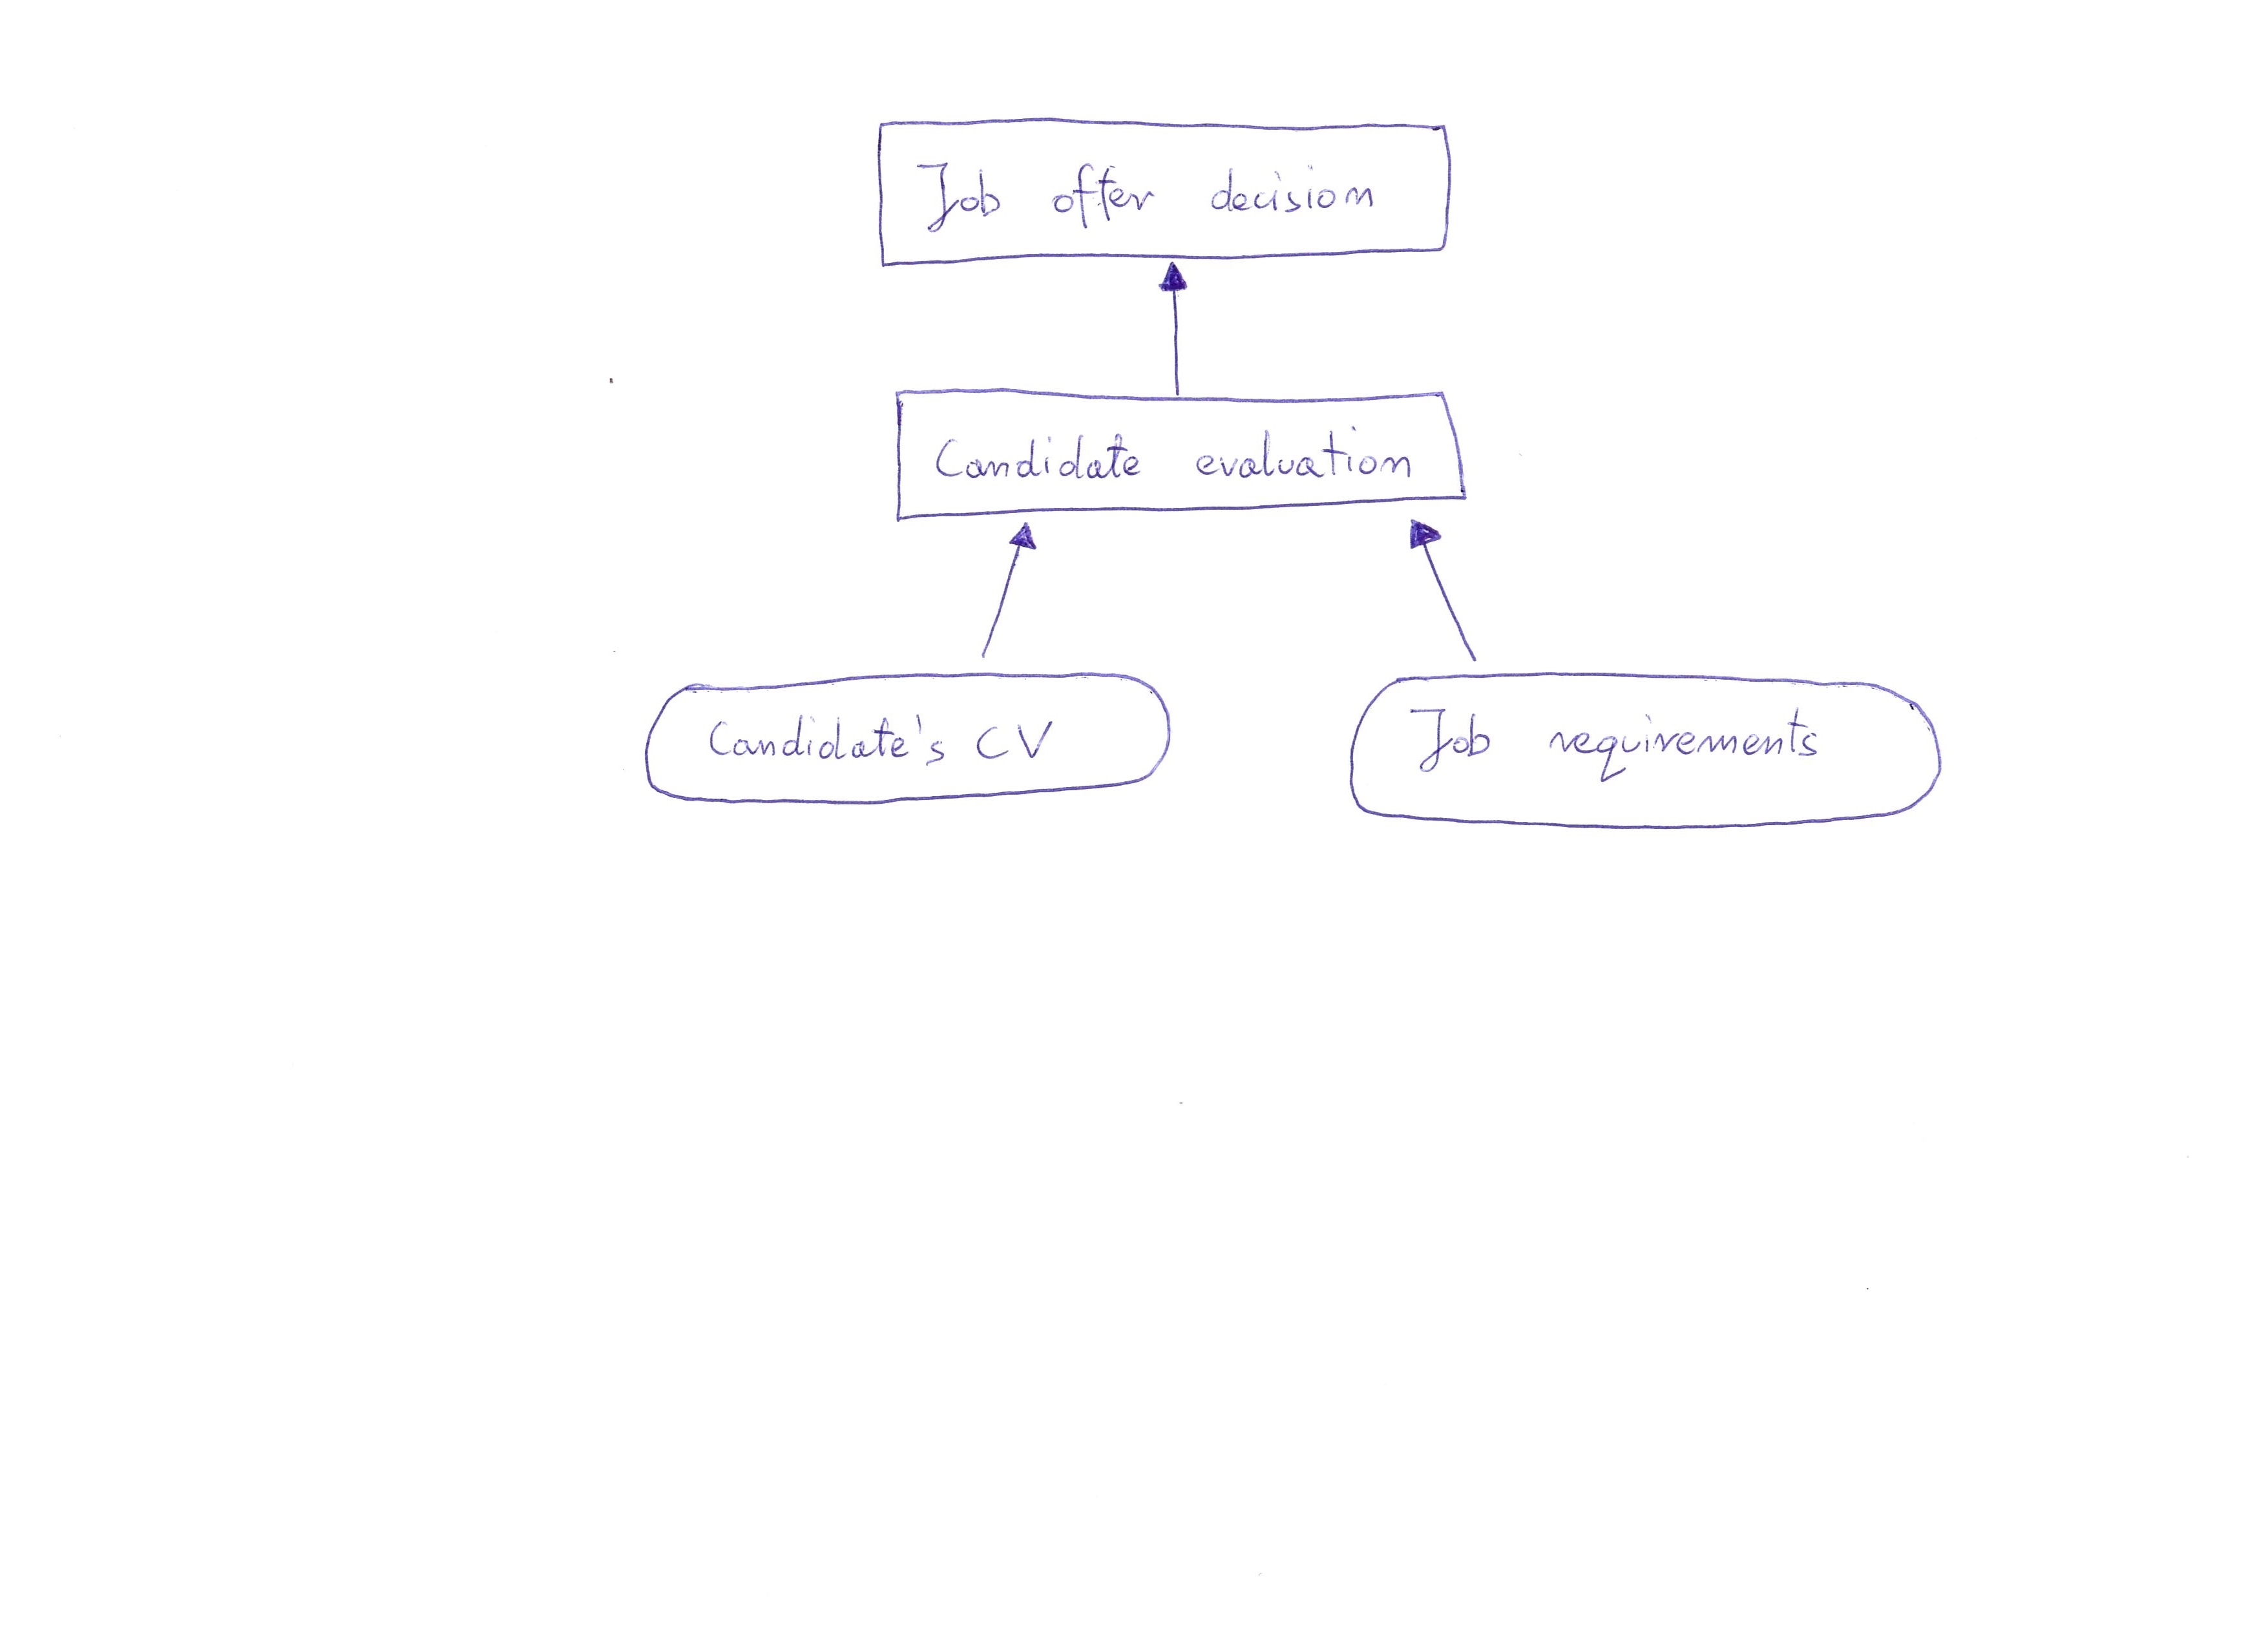 Job offer decision
Candidate evaluation
Candidate's CV
Job requirements